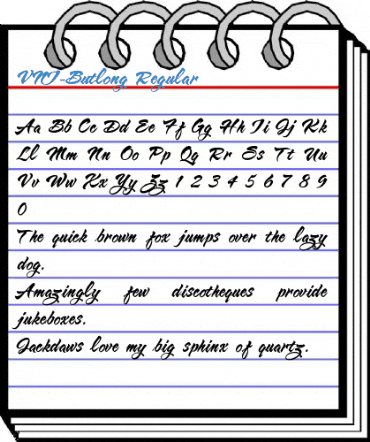 VNI-Butlong Regular
Aa Bb Cc Dd Ee Ff Gg Hh Ii Jj Kk
Ll Mm Nn Oo Pp Qq Rr Ss Tt Uu
Vv Ww Xx Yy Zz 1 2 3 4 5 6 7 8 9
0
The quick brown fox jumps over the lazy
dog.
Amazingly few discotheques provide
jukeboxes.
Jackdaws love my big sphinx of quartz.